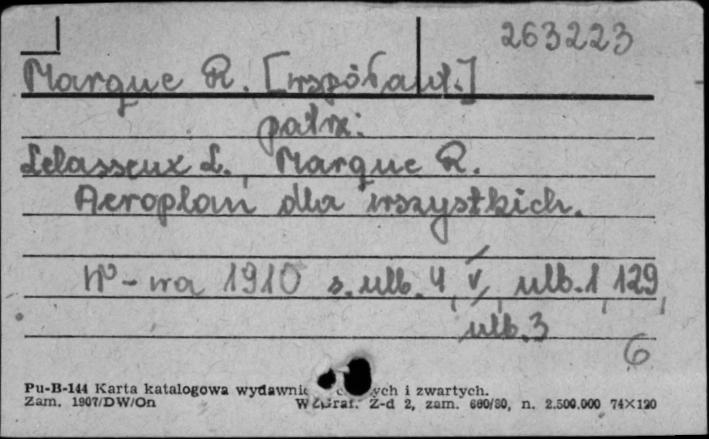 263223
Marque R. [współaut.]
patrz:
Lelasseux L., Marque R.
Aeroplan dla wszystkich.
W-wa 1910 s. ulb. 4, V, ulb. 1, 129,
ulb. 3
6
Pu-B-144 Karta katalogowa wydawnic ych i zwartych.
Zam. 1907/DW/On Z-d 2, zam. 680/80, n. 2.500.000 74×120